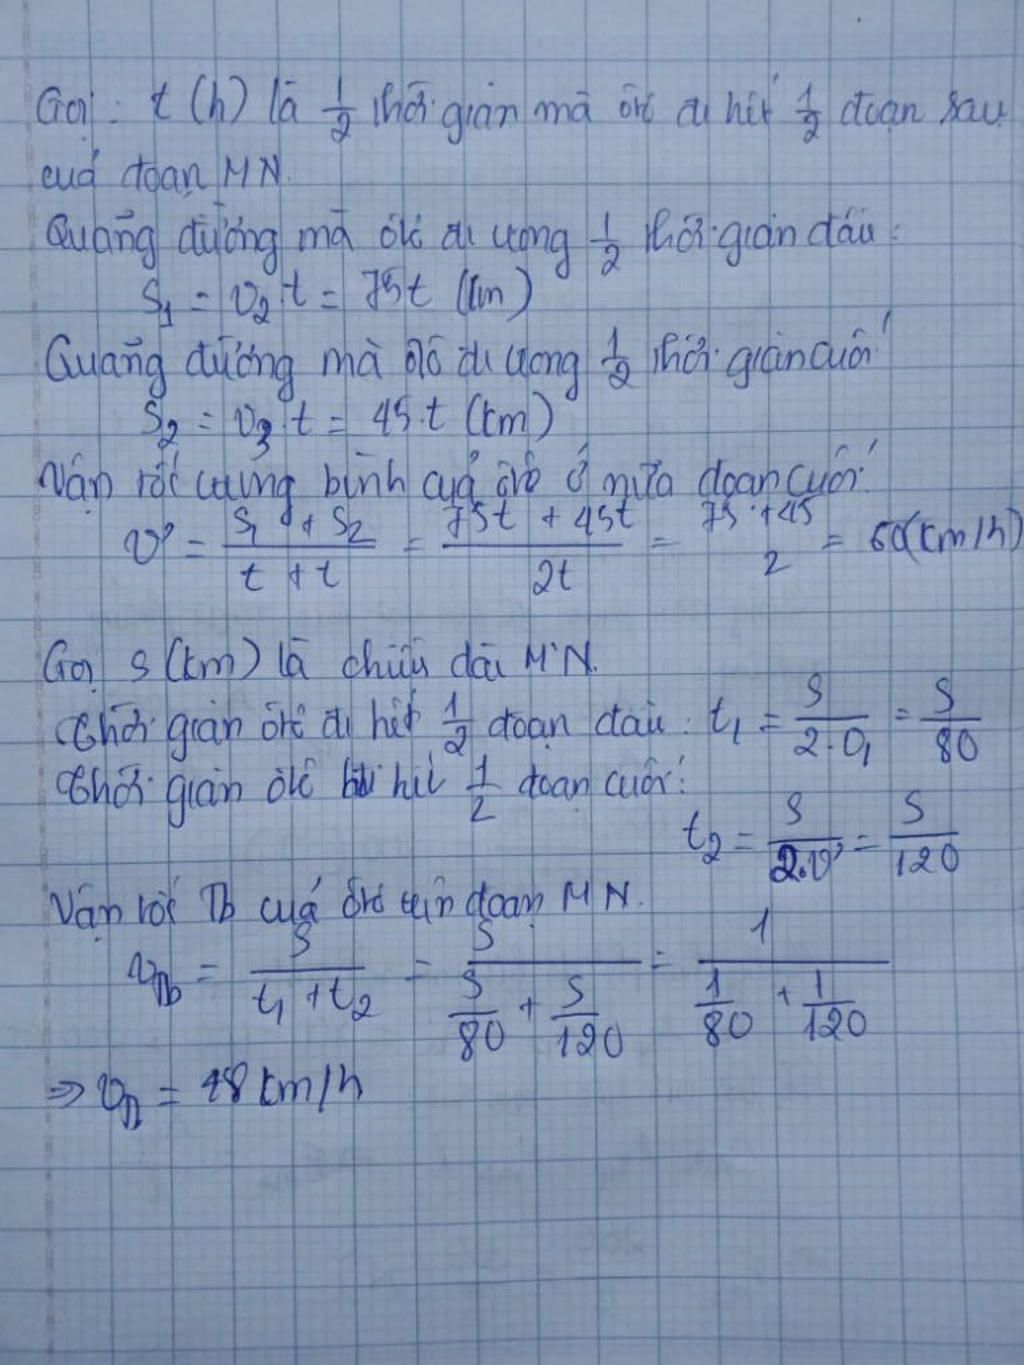 Gọi: t (h) là 1/2 thời gian mà ôtô đi hết 1/2 đoạn sau
của đoạn MN.
Quãng đường mà ôtô đi trong 1/2 thời gian đầu:
S₁ = v₂.t = 75t (km)
Quãng đường mà ôtô đi trong 1/2 thời gian cuối
S₂ = v₃.t = 45.t (km)
Vận tốc trung bình của ôtô ở nửa đoạn cuối:
v' = (S₁ + S₂)/(t + t) = (75t + 45t)/2t = (75 + 45)/2 = 60(km/h)
Gọi S (km) là chiều dài MN.
Thời gian ôtô đi hết 1/2 đoạn đầu: t₁ = S/(2.v₁) = S/80
Thời gian ôtô hết 1/2 đoạn cuối:
t₂ = S/(2.v') = S/120
Vận tốc Tb của ôtô trên đoạn MN.
v_Tb = S/(t₁ + t₂) = S/(S/80 + S/120) = 1/(1/80 + 1/120)
=> = 48 km/h